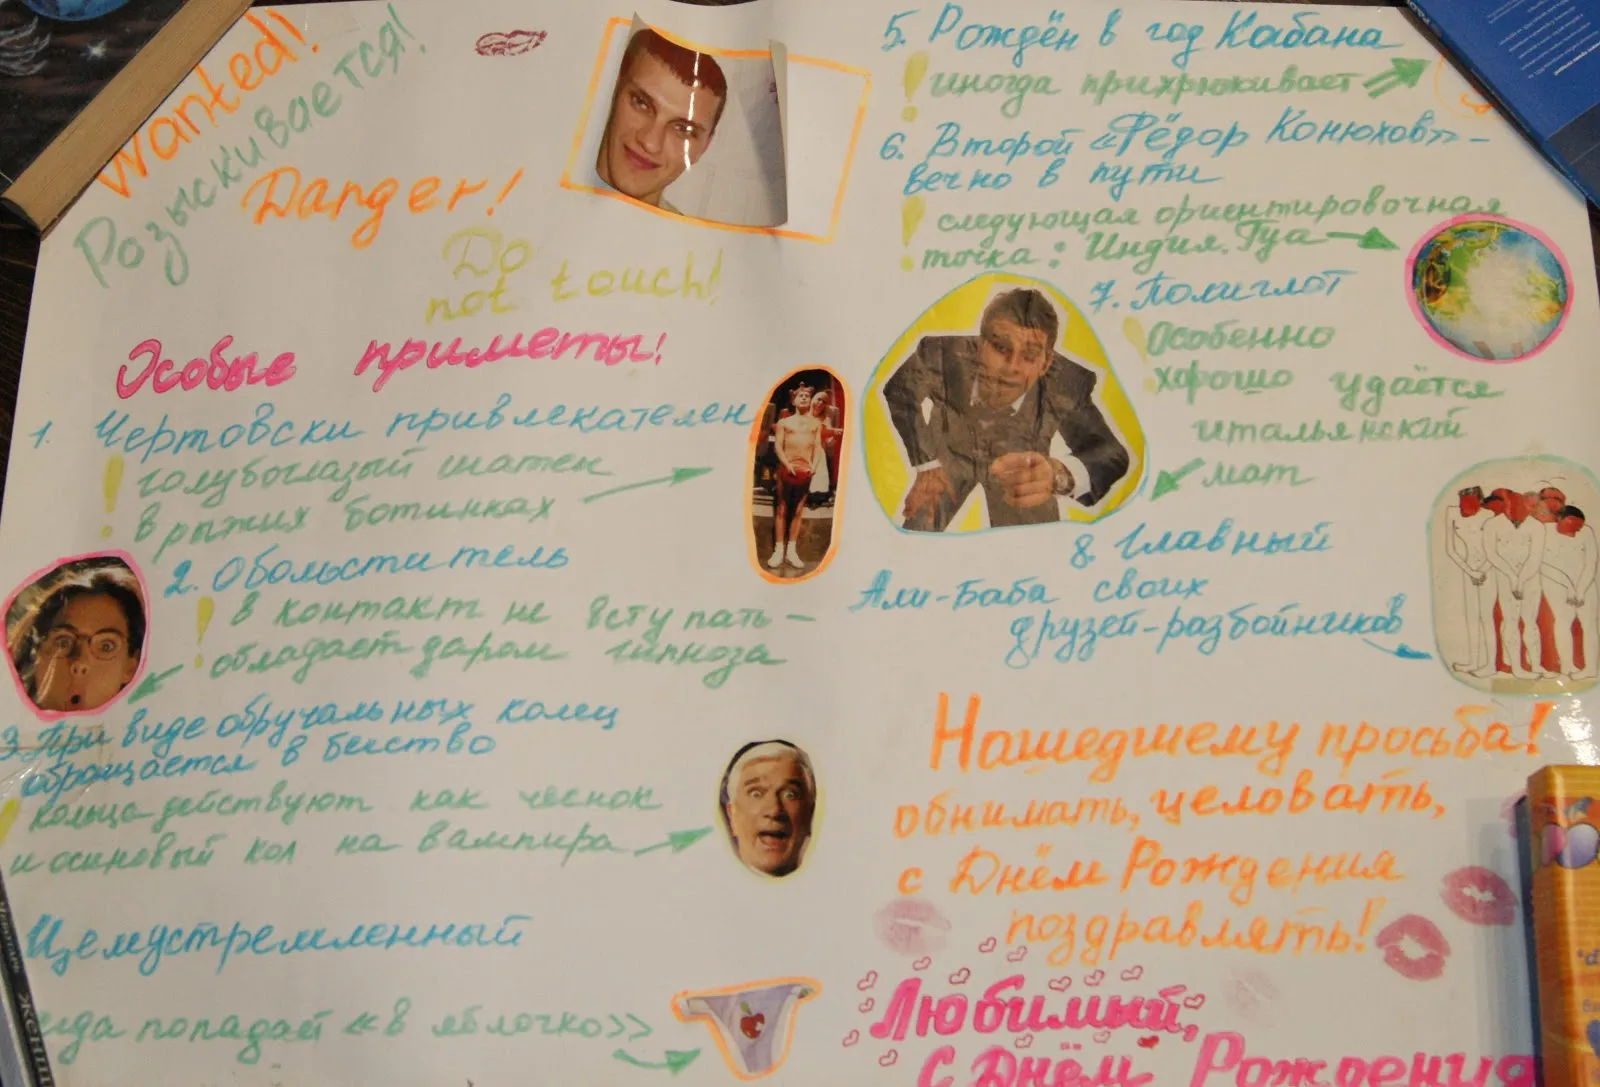 Wanted!
Разыскивается!
Danger!
Do
not touch!
Особые приметы!
1. Чертовски привлекателен
! голубоглазый шатен
в рыжих ботинках
2. Обольститель
! в контакт не вступать –
обладает даром гипноза
3. При виде обручальных колец
обращается в бегство
! кольца действуют как чеснок
и осиновый кол на вампира
Целеустремленный
попадает «в яблочко»
5. Рождён в год Кабана
! иногда прихрюкивает
6. Второй «Фёдор Конюхов» –
вечно в пути
! следующая ориентировочная
точка: Индия. Гуа
7. Полиглот
! Особенно
хорошо удаётся
итальянский
мат
8. Главный
Али-Баба своих
друзей-разбойников
Нашедшему просьба!
обнимать, целовать,
с Днём Рождения
поздравлять!
Любимый,
с Днём Рождения